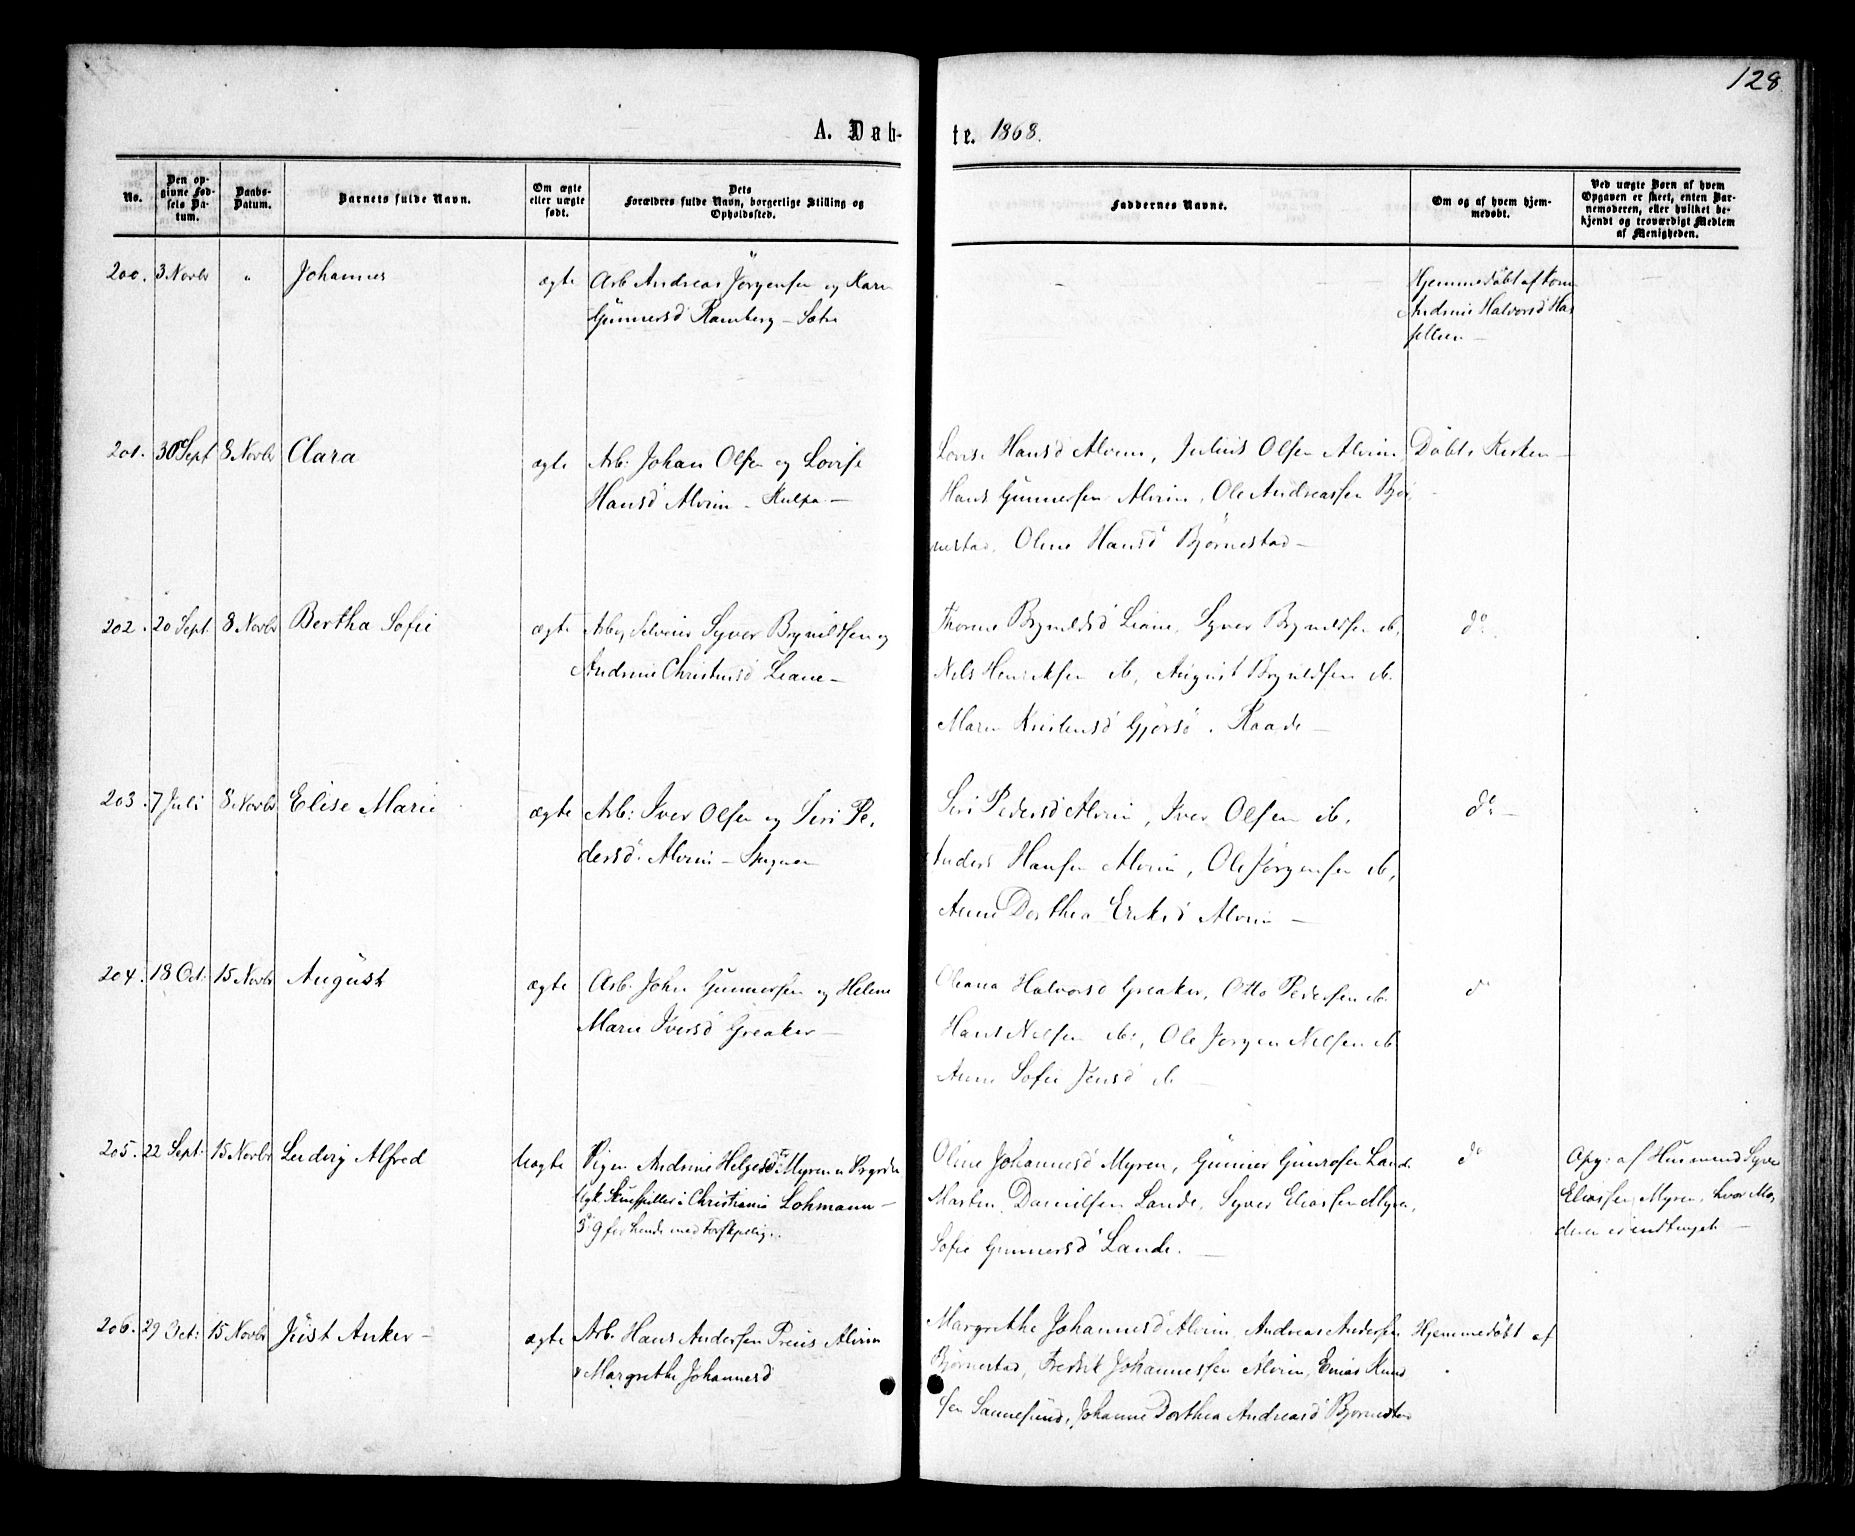 128
A. Døb-
te. 1868.
No.
Den op-
givne Fød-
sels Da-
tum.
Daabs-
Datum.
Barnets fulde Navn.
Om ægte
eller uægte
født.
Dets
Forældres fulde Navn, borgerlige Stilling og
Opholdssted.
Faddernes Navne.
Om og af hvem hjem-
medøbt.
Ved uægte Børn af hvem
Opgaven er skeet, enten Bar-
nemoderen, eller hvilket be-
kjendt og troværdigt Medlem
af Menigheden.
200. 3 Novbr " Johannes ægte Arb Andreas Jörgensen og Karn
Gunnersd Ramberg - Sætre
Hjemmedøbt af Kone
Andrine Halvorsd
201. 30 Sept 8 Novbr Clara ægte Arb: Johan Olsen og Lovise
Hansd Alvim - Kulpa -
Lovise Hansd Alvim, Julius Olsen Alvim
Hans Gunnersen Alvim, Ole Andreassen Bjør
nestad, Oline Hansd Bjørnestad -
Døbt i Kirken -
202. 20 Sept. 8 Novbr Bertha Sofie ægte Arb. Selveier Syver Brynildsen og
Andrine Christensd Liane -
Thorine Brynildsd Liane, Syver Brynildsen ib,
Nils Henriksen ib, August Brynildsen ib.
Maren Kristensd Gjørsø. Raade -
do.
203. 7 Juli 8 Novbr Elise Marie ægte Arb: Iver Olsen og Siri Pe,
dersd. Alvim -
Siri Pedersd Alvim, Iver Olsen ib,
Anders Hansen Alvim, Ole Jørgensen ib,
Anne Dorthea Eriksd Alvim -
do. -
204. 18 Oct: 15 Novbr August ægte Arb. John Gunnersen og Helene
Marie Iversd Greaker -
Oleana Halvorsd Greaker, Otto Pedersen ib.
Hans Nilsen ib:, Ole Jørgen Nilsen ib
Anne Sofie Jensd ib -
do
205. 22 Sept: 15 Novbr Ludvig Alfred Uægte Pigen Andrine Helgesd: Myren
Skuespiller i Christiania Lohmann -
3: 9 for hende med
Oline Johannesd Myren, Gunner Gunersen Lande
Martin Danielsen Lande, Syver Eliassen Myren,
Sofie Gunnersd Lande. -
do
Opg: af Husmand Syver
Eliassen, Myren, hvor Mo,
deren er indtinget -
206. 29 Oct: 15 Novbr Just Anker - ægte Arb. Hans Andersen Preus Alvim
& Margrethe Johannesd
Margrethe Johannesd Alvim, Andreas Andersen
Bjørnestad, Fredrik Johannessen Alvim, Enias Knud
sen Sannesund, Johanne Dorthea Andreasd Bjørnestad
Hjemmedøbt af